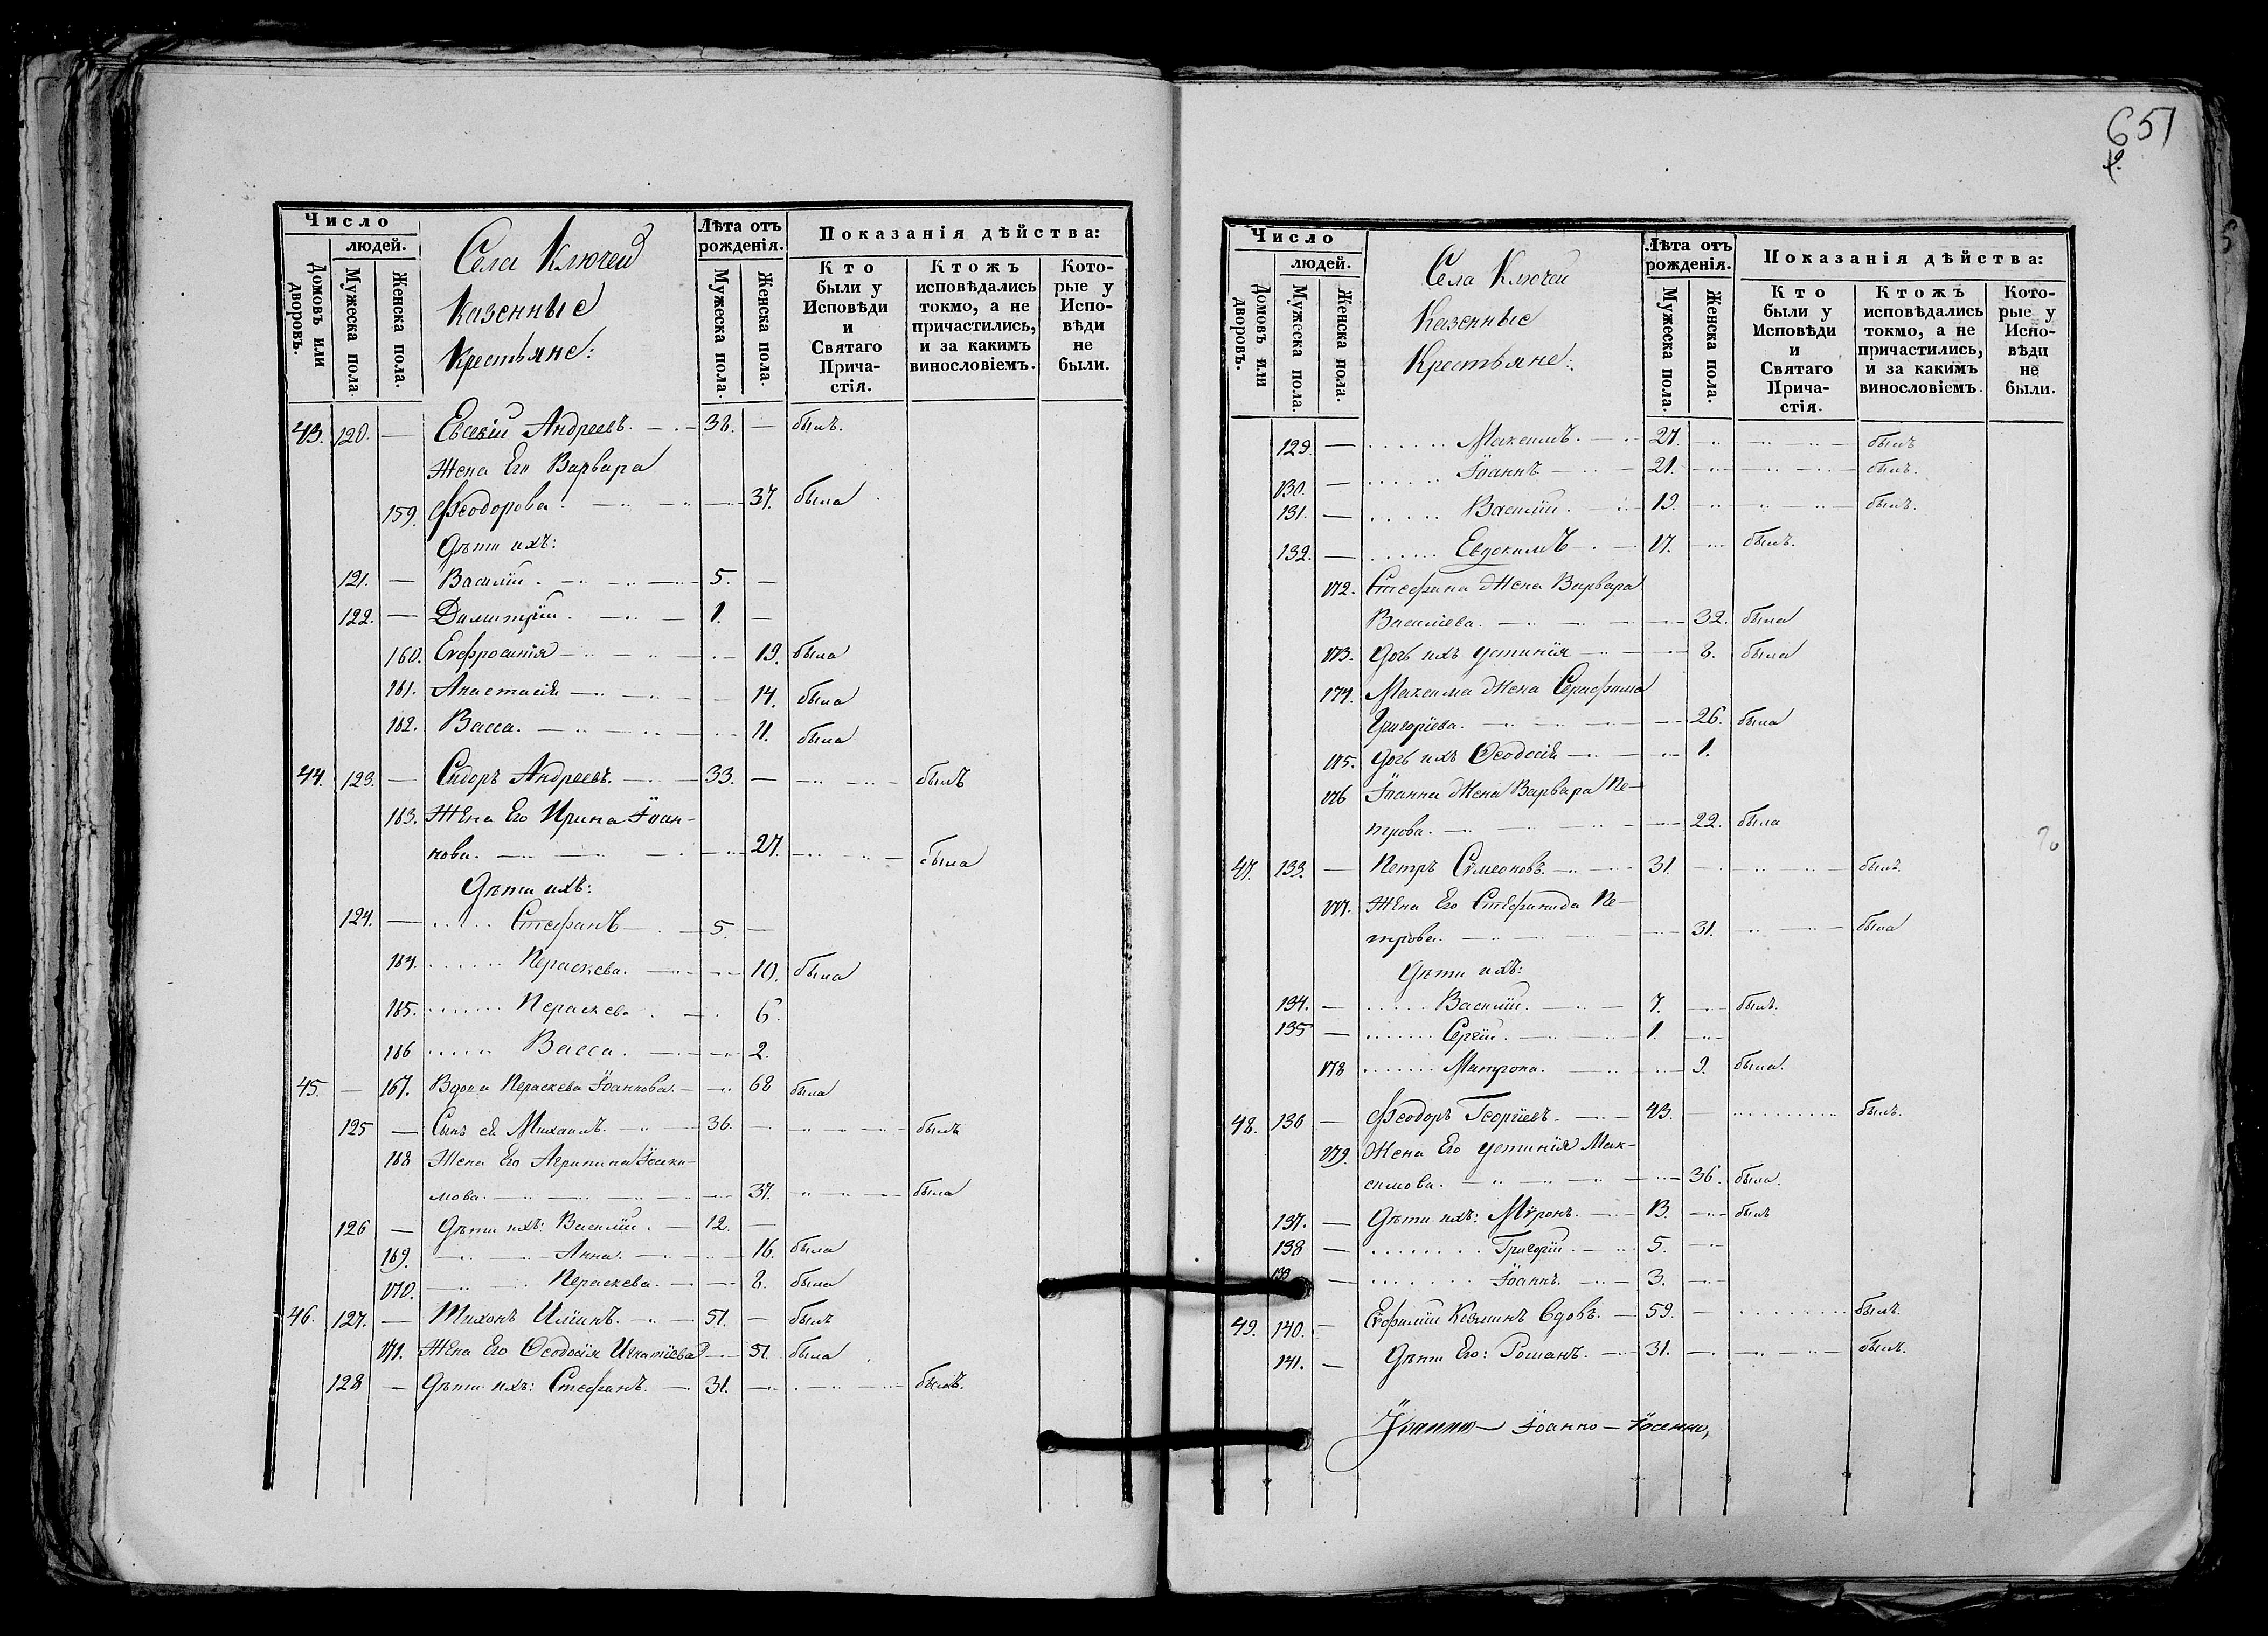 Число
людей.
Домовъ или дворовъ.
Мужеска пола.
Женска пола.
Села Ключей
Казенные
Крестьяне:
Лѣта отъ рожденія.
Мужеска пола.
Женска пола.
Показанія дѣйства:
Кто были у Исповѣди и Святаго Прича-стія.
Ктожъ исповѣдались токмо, а не причастились, и за какимъ винословіемъ.
Кото-рые у Испо-вѣди не были.
43. 120. — Евсевій Андреевъ. 38. — былъ.
Жена Его Варвара
159. Феодорова. 37. была
Дѣти ихъ:
121. — Василій. 5. —
122. — Димитрій. 1. —
160. Евфросинія 19. была
161. Анастасія 14. была
162. Васса. 11. была
44. 123. — Сидоръ Андреевъ. 33. — былъ
163. Жена Его Ирина Іоан-
нова. 27. была
Дѣти ихъ:
124. — Стефанъ 5. —
164. Параскева. 10. была
165. Параскева 6.
166 Васса. 2.
45. — 167. Вдова Параскева Іоаннова. 68 была
125 — Сынъ ея Михаилъ. 36. — былъ
168 Жена Его Агрипина Іоаки-
мова. 37. была
126 — Дѣти ихъ: Василій. 12. —
169. Анна. 16. была
170. Параскева. 8. была
46. 127. — Тихонъ Илиинъ. 51. — былъ
171. Жена Его Ѳеодосія Игнатіева 51. была
128 — Дѣти ихъ: Стефанъ. 31. — былъ.
651
Число
людей.
Домовъ или дворовъ.
Мужеска пола.
Женска пола.
Села Ключей
Казенные
Крестьяне:
Лѣта отъ рожденія.
Мужеска пола.
Женска пола.
Показанія дѣйства:
Кто были у Исповѣди и Святаго Прича-стія.
Ктожъ исповѣдались токмо, а не причастились, и за какимъ винословіемъ.
Кото-рые у Испо-вѣди не были.
129. — Максимъ. 27. былъ
130. — Іоаннъ 21. былъ.
131. — Василій. 19. былъ.
132. — Евдокимъ 17. былъ.
172. Стефана Жена Варвара
Василіева. 32. была
173. Дочь ихъ Устинія 8. была
174. Максима Жена Серафима
Григоріева. 26. была
175. Дочь ихъ Ѳеодосія 1.
176 Іоанна Жена Варвара Пе-
трова. 22. была
47. 133. — Петръ Сѵмеоновъ. 31. былъ.
177. Жена Его Стефанида Пе-
трова. 31. была
Дѣти ихъ:
134. — Василій. 7. былъ.
135 — Сергій. 1.
178 Матрона. 9. была.
48. 136 — Феодоръ Георгіевъ. 43. — былъ.
179. Жена Его Устинія Мак-
симова. 36. была.
137. — Дѣти ихъ: Мѵронъ. 13. былъ
138 — Григорій. 5.
139 — Іоаннъ. 3.
49. 140. — Евфимій Козминъ Вдовъ. 59. — былъ.
141. — Дѣти Его: Романъ. 31. былъ.